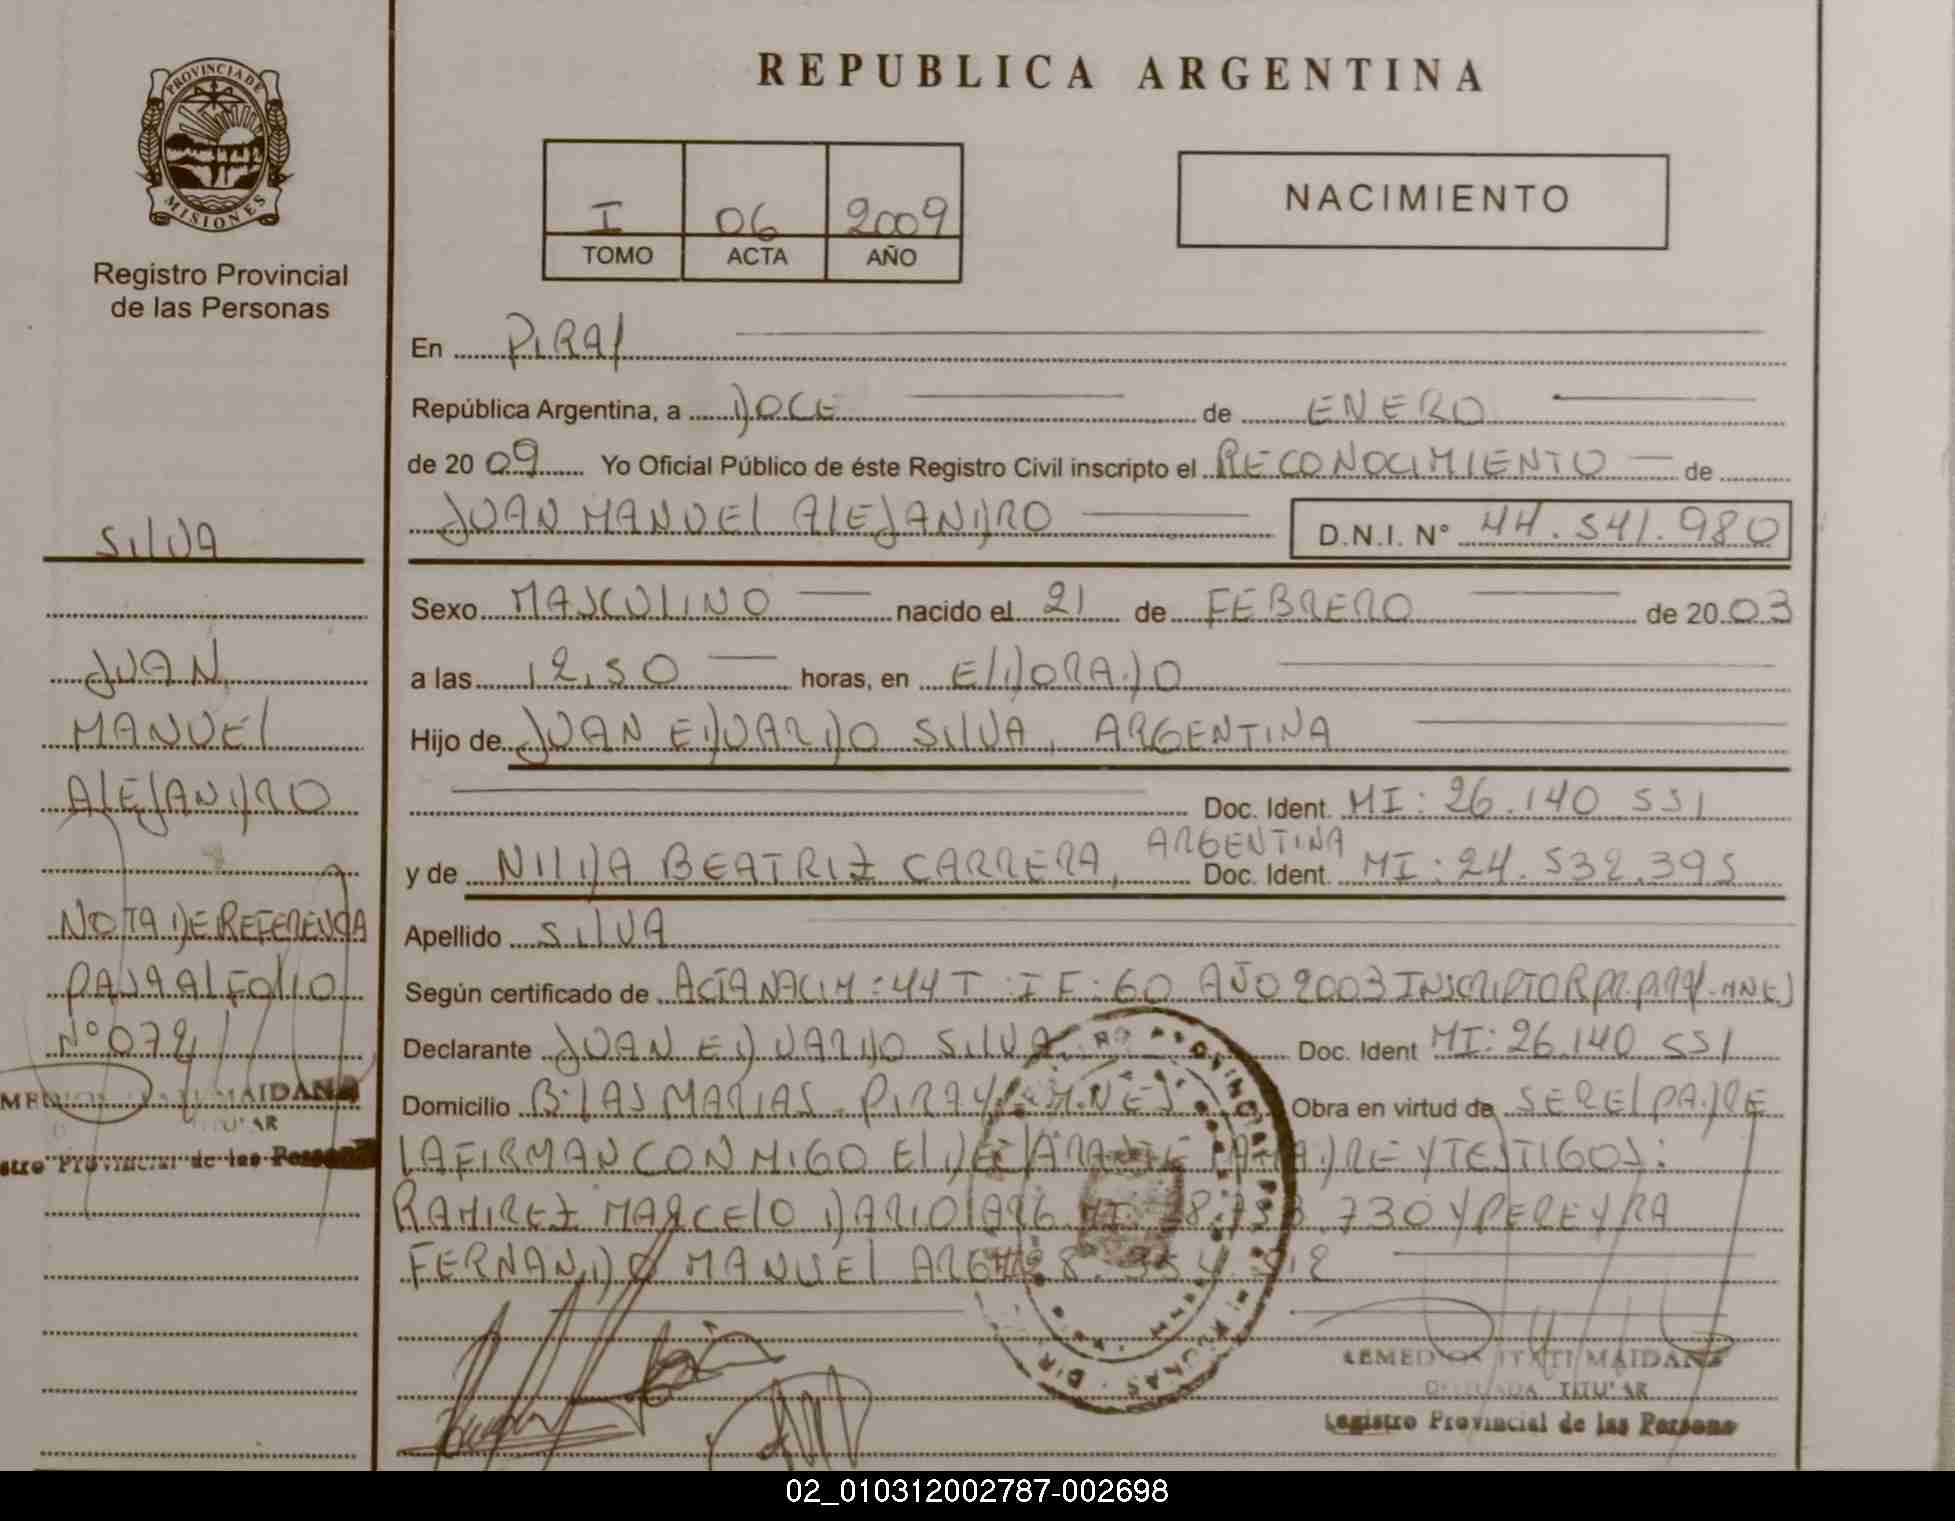 PROVINCIA DE
MISIONES
Registro Provincial
de las Personas
REPUBLICA ARGENTINA
I 06 2009
TOMO ACTA AÑO
NACIMIENTO
En PIRAY
República Argentina, a DOCE de ENERO
de 20 09 Yo Oficial Público de éste Registro Civil inscripto el RECONOCIMIENTO de
JUAN MANUEL ALEJANDRO D.N.I. N° 44.541.980
Sexo MASCULINO nacido el 21 de FEBRERO de 20 03
a las 12,50 horas, en ELDORADO
Hijo de JUAN EDUARDO SILVA, ARGENTINA
Doc. Ident. MI: 26.140 551
ARGENTINA
y de NILDA BEATRIZ CARRERA, Doc. Ident. MI: 24.532.395
Apellido SILVA
Según certificado de ACTA NACIM: 44 T: I F: 60 AÑO 2003 INSCRIPTO
Declarante JUAN EDUARDO SILVA Doc. Ident MI: 26.140 551
Domicilio B: LAS MARIAS PIRAY MNES Obra en virtud de SER EL PADRE
LA FIRMAN CONMIGO EL DECLARANTE Y TESTIGOS:
RAMIREZ MARCELO DARIO ARG MI 730 Y PEREYRA
FERNANDO MANUEL ARG
REMEDIOS ITATI MAIDANA
DELEGADA TITULAR
Registro Provincial de las Persona
SILVA
JUAN
MANUEL
ALEJANDRO
NOTA DE REFERENCIA
PASA AL FOLIO
N° 072
MAIDANA
de las
02_010312002787-002698